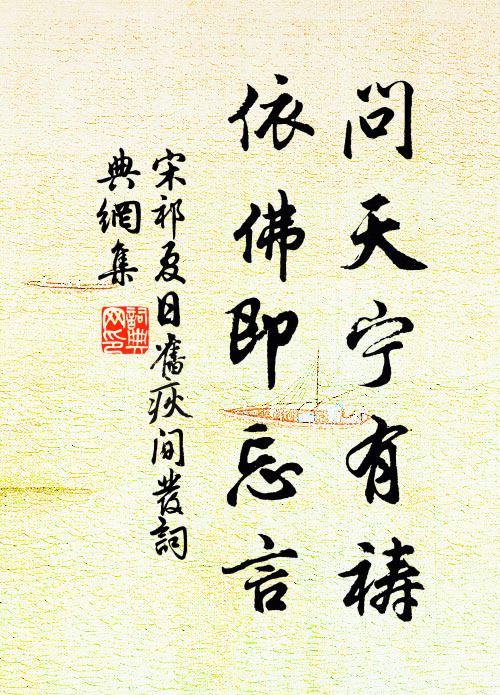 问天宁有祷
依佛即忘言
宋祁夏日旧疾间发詞
典網集
詞典网印